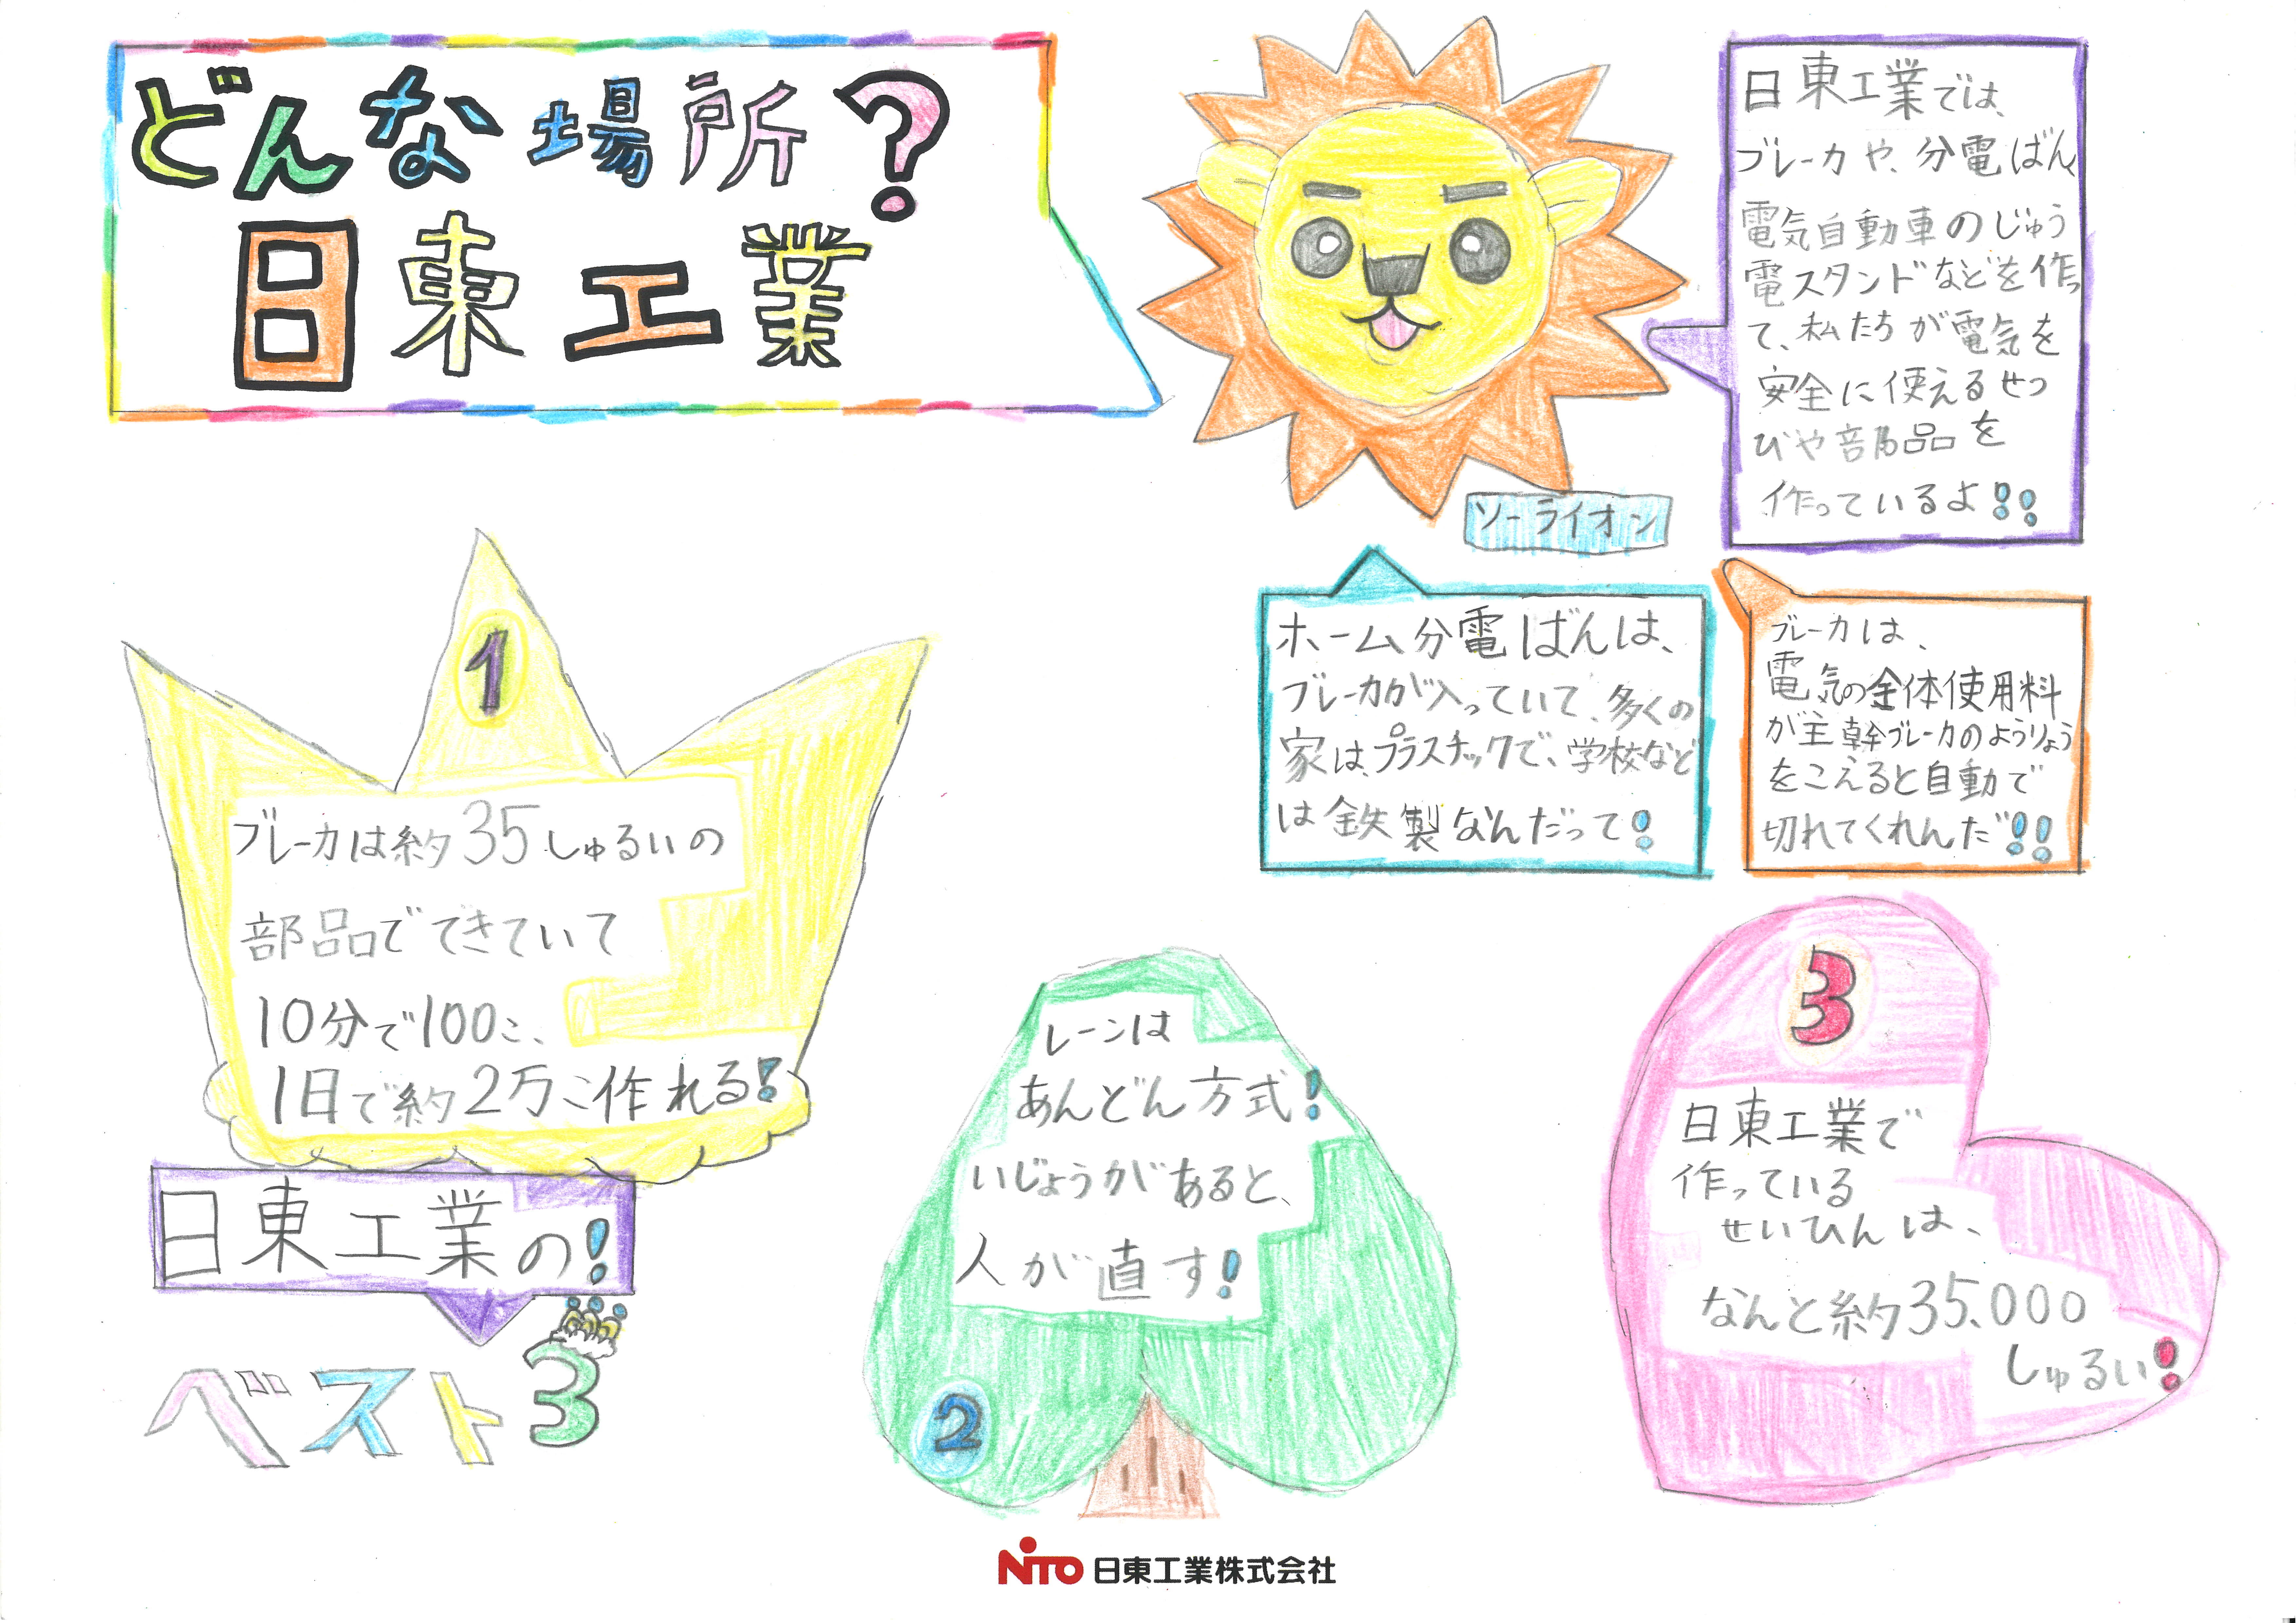 どんな場所?
日東工業
日東工業では、
ブレーカや、分電ばん
電気自動車のじゅう
電スタンドなどを作っ
て、私たちが電気を
安全に使えるせつ
びや部品を
作っているよ!!
ソーライオン
ホーム分電ばんは、
ブレーカが入っていて、多くの
家は、プラスチックで、学校など
は鉄製なんだって!
ブレーカは、
電気の全体使用料
が主幹ブレーカのようりょう
をこえると自動で
切れてくれんだ!!
1
ブレーカは約35しゅるいの
部品でできていて
10分で100こ、
1日で約2万こ作れる!
日東工業の!
ベスト3
レーンは
あんどん方式!
いじょうがあると、
人が直す!
2
3
日東工業で
作っている
せいひんは、
なんと約35.000
しゅるい!
NITO 日東工業株式会社